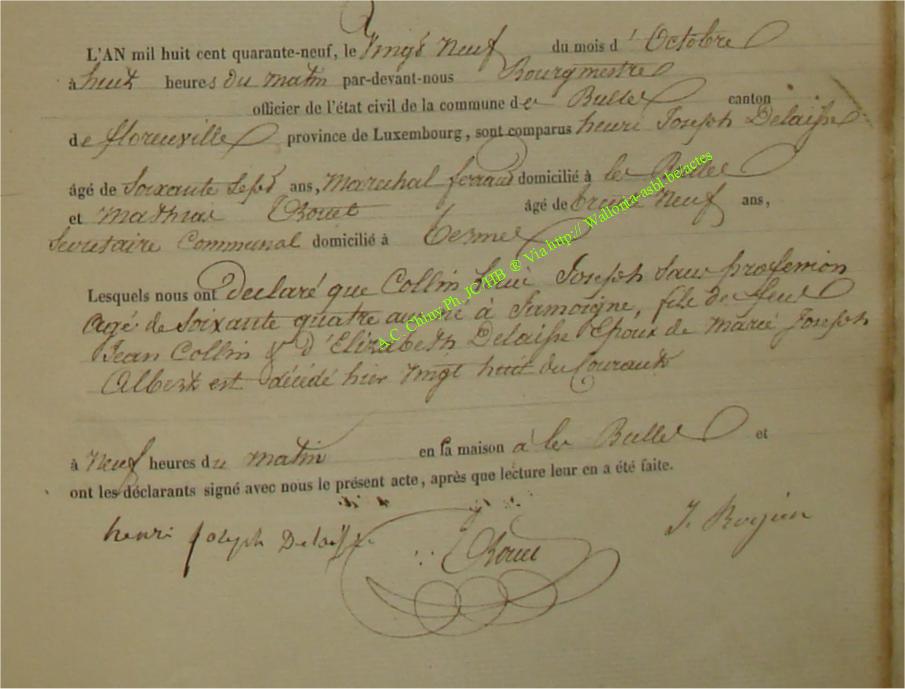 L'AN mil huit cent quarante-neuf, le Vingt Neuf du mois d' Octobre
à huit heures du matin par-devant-nous Bourgmestre
officier de l'état civil de la commune de Bulles canton
de florenville province de Luxembourg, sont comparus henri Joseph Delaisse
âgé de Soixante Sept ans, Marechal ferrand domicilié à les Bulles
et Mathias Rouet âgé de trente Neuf ans,
Secretaire Communal domicilié à Termes
Lesquels nous ont declaré que Collin Joseph Sans profession
agé de Soixante quatre ans né à Jamoigne, fils de feu
Jean Collin & d'Elizabeth Delaisse Epoux de Marie Joseph
Albert est décédé hier vingt huit du Courant
à Neuf heures du matin en la maison à les Bulles et
ont les déclarants signé avec nous le présent acte, après que lecture leur en a été faite.
henri joseph Delaisse
Rouet
A.C. Chiny Ph. JC HB ® Via http:// Wallonia-asbl.be/actes